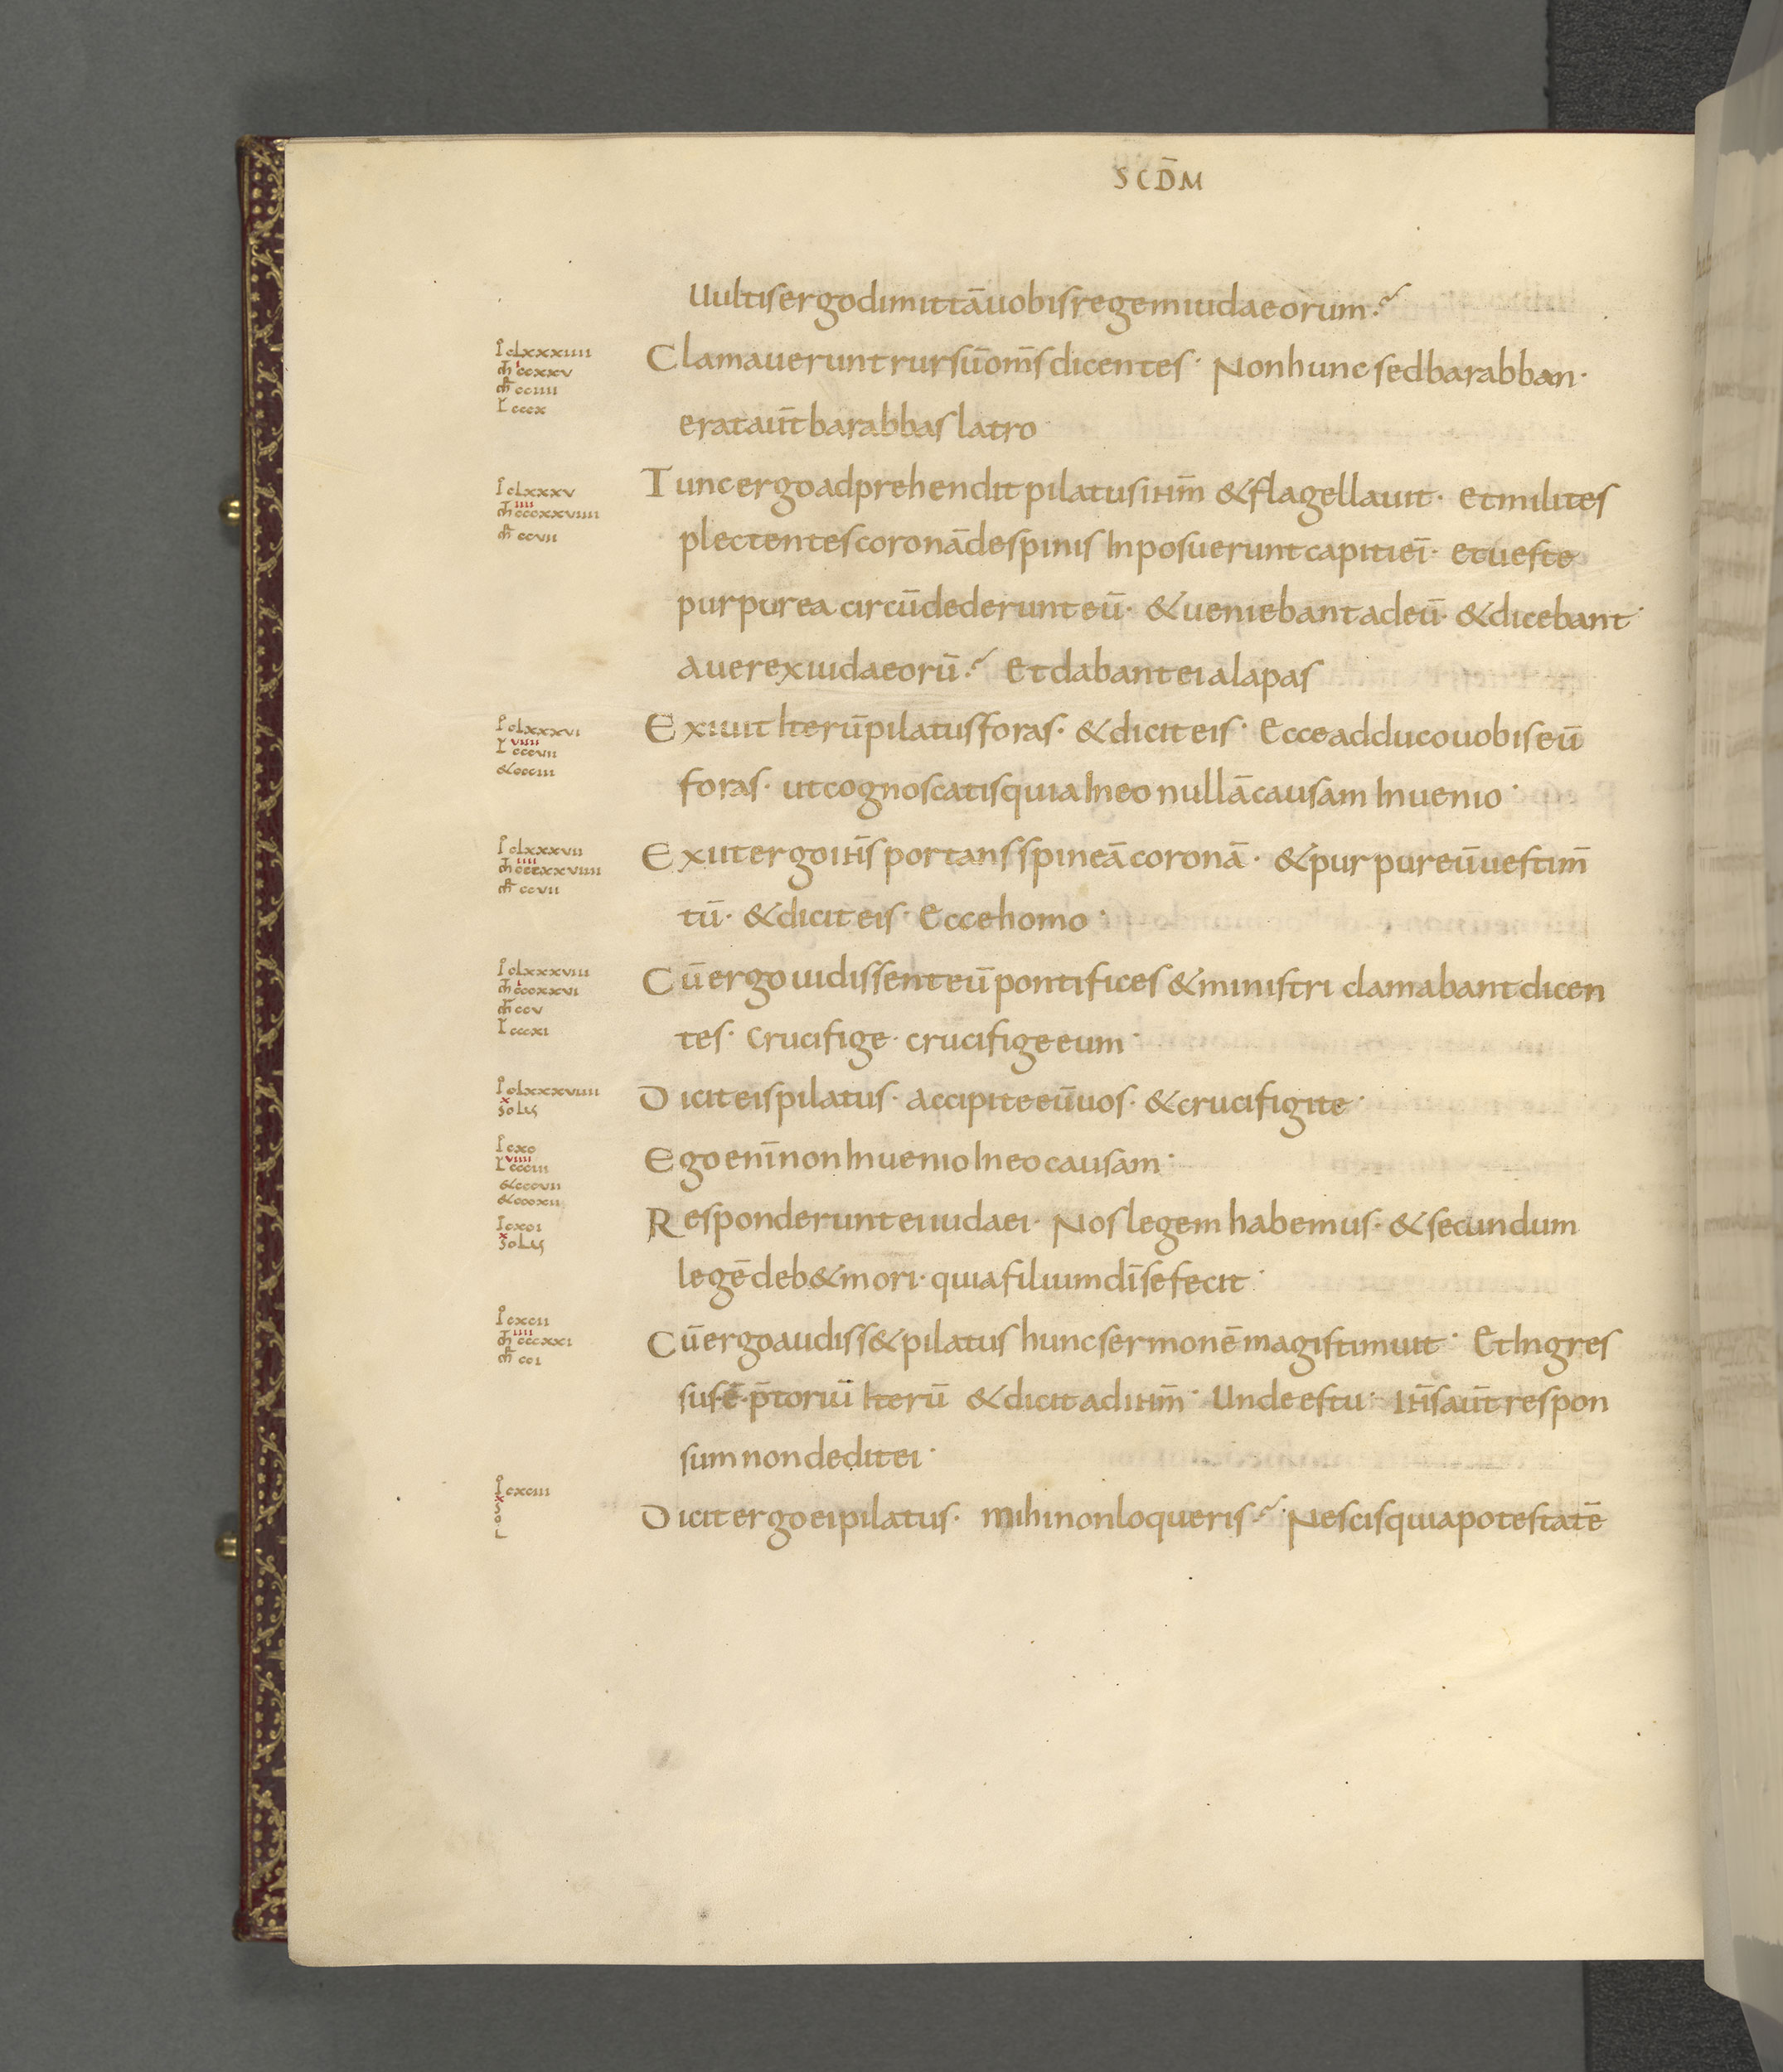 SCD̄M
Uultis ergo dimittā uobis regem iudaeorum·
Clamauerunt rursū om̄s dicentes· Non hunc sed barabban·
erat aūt barabbas latro
Tunc ergo adprehendit pilatus ihm̄ & flagellauit· et milites
plectentes coronā de spinis Inposuerunt capiti eī· et ueste
purpurea circūdederunt eū· & ueniebant ad eū· & dicebant·
aue rex iudaeorū· Et dabant ei alapas
Exiuit Iterū pilatus foras· & dicit eis· Ecce adduco uobis eū
foras· ut cognoscatis quia In eo nullā causam Inuenio·
Exiit ergo ihs̄ portans spineā coronā· & purpureū uestim̄
tū· & dicit eis· Ecce homo·
Cū ergo uidissent eū pontifices & ministri clamabant dicen
tes· Crucifige· crucifige eum·
Dicit eis pilatus· accipite eū uos· & crucifigite·
Ego enī non Inuenio In eo causam·
Responderunt ei iudaei· Nos legem habemus· & secundum
legē deb& mori· quia filium dī se fecit·
Cū ergo audiss& pilatus hunc sermonē magis timuit· Et Ingres
sus ē· p̄toriū Iterū & dicit ad ihm̄· Unde es tu· ihs̄ aūt respon
sum non dedit ei·
Dicit ergo ei pilatus· mihi non loqueris· Nescis quia potestatē
I clxxxiiii
i
m̄ cccxxv
m̄r cciiii
L cccx
I clxxxv
iiii
m̄ cccxxviiii
m̄r ccvii
I clxxxvi
viiii
L cccvii
& ccciii
I clxxxvii
iiii
m̄ cccxxviiii
m̄r ccvii
I clxxxviii
i
m̄ cccxxvi
m̄r ccv
L cccxi
I clxxxviiii
x
solus
I cxc
viiii
L ccciii
& cccvii
& cccxii
I cxci
x
solus
I cxcii
iiii
m̄ cccxxi
m̄r cci
I cxciii
x
s
o
L